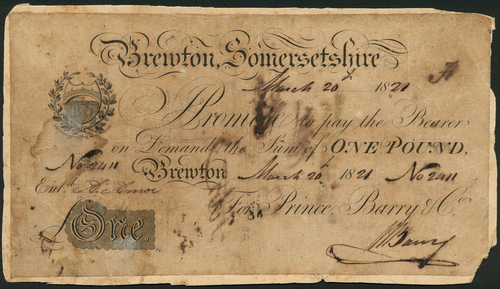 Brewton, Somersetshire
March 20th 1821 A
I Promise to pay the Bearer
on Demand the Sum of ONE POUND,
No 2411 Brewton March 20th 1821 No 2411
Entd
For Prince, Barry & Co.
One.
Barry